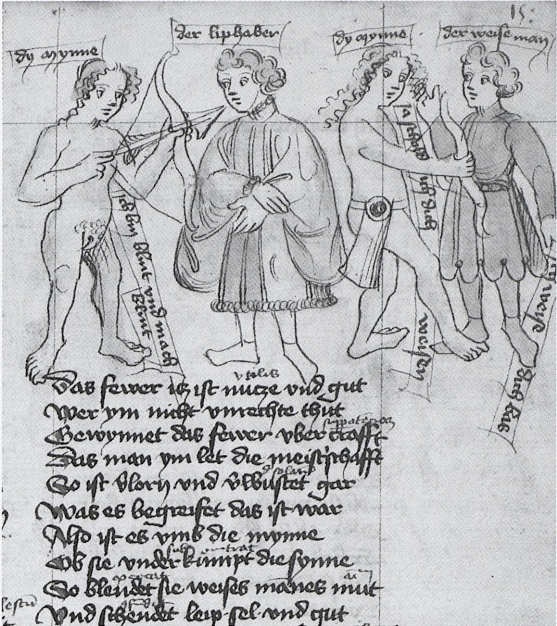 15
dy mynne
der liphaber
dy mynne
der weise man
ich bin blint vnd mach
blint
ich
weisen
utilis
Das fewer iz ist nucze vnd gut
Wer ym nicht vnrechte thut
Gewynnet das fewer vber crafft
Das man ym let die meistschafft
So ist vlorn vnd vwustet gar
Was es begreifet das ist war
Also ist es vmb die mynne
Ob sie vnderkumpt die synne
So blendet sie weises manes mut
Vnd schendet leip sel vnd gut